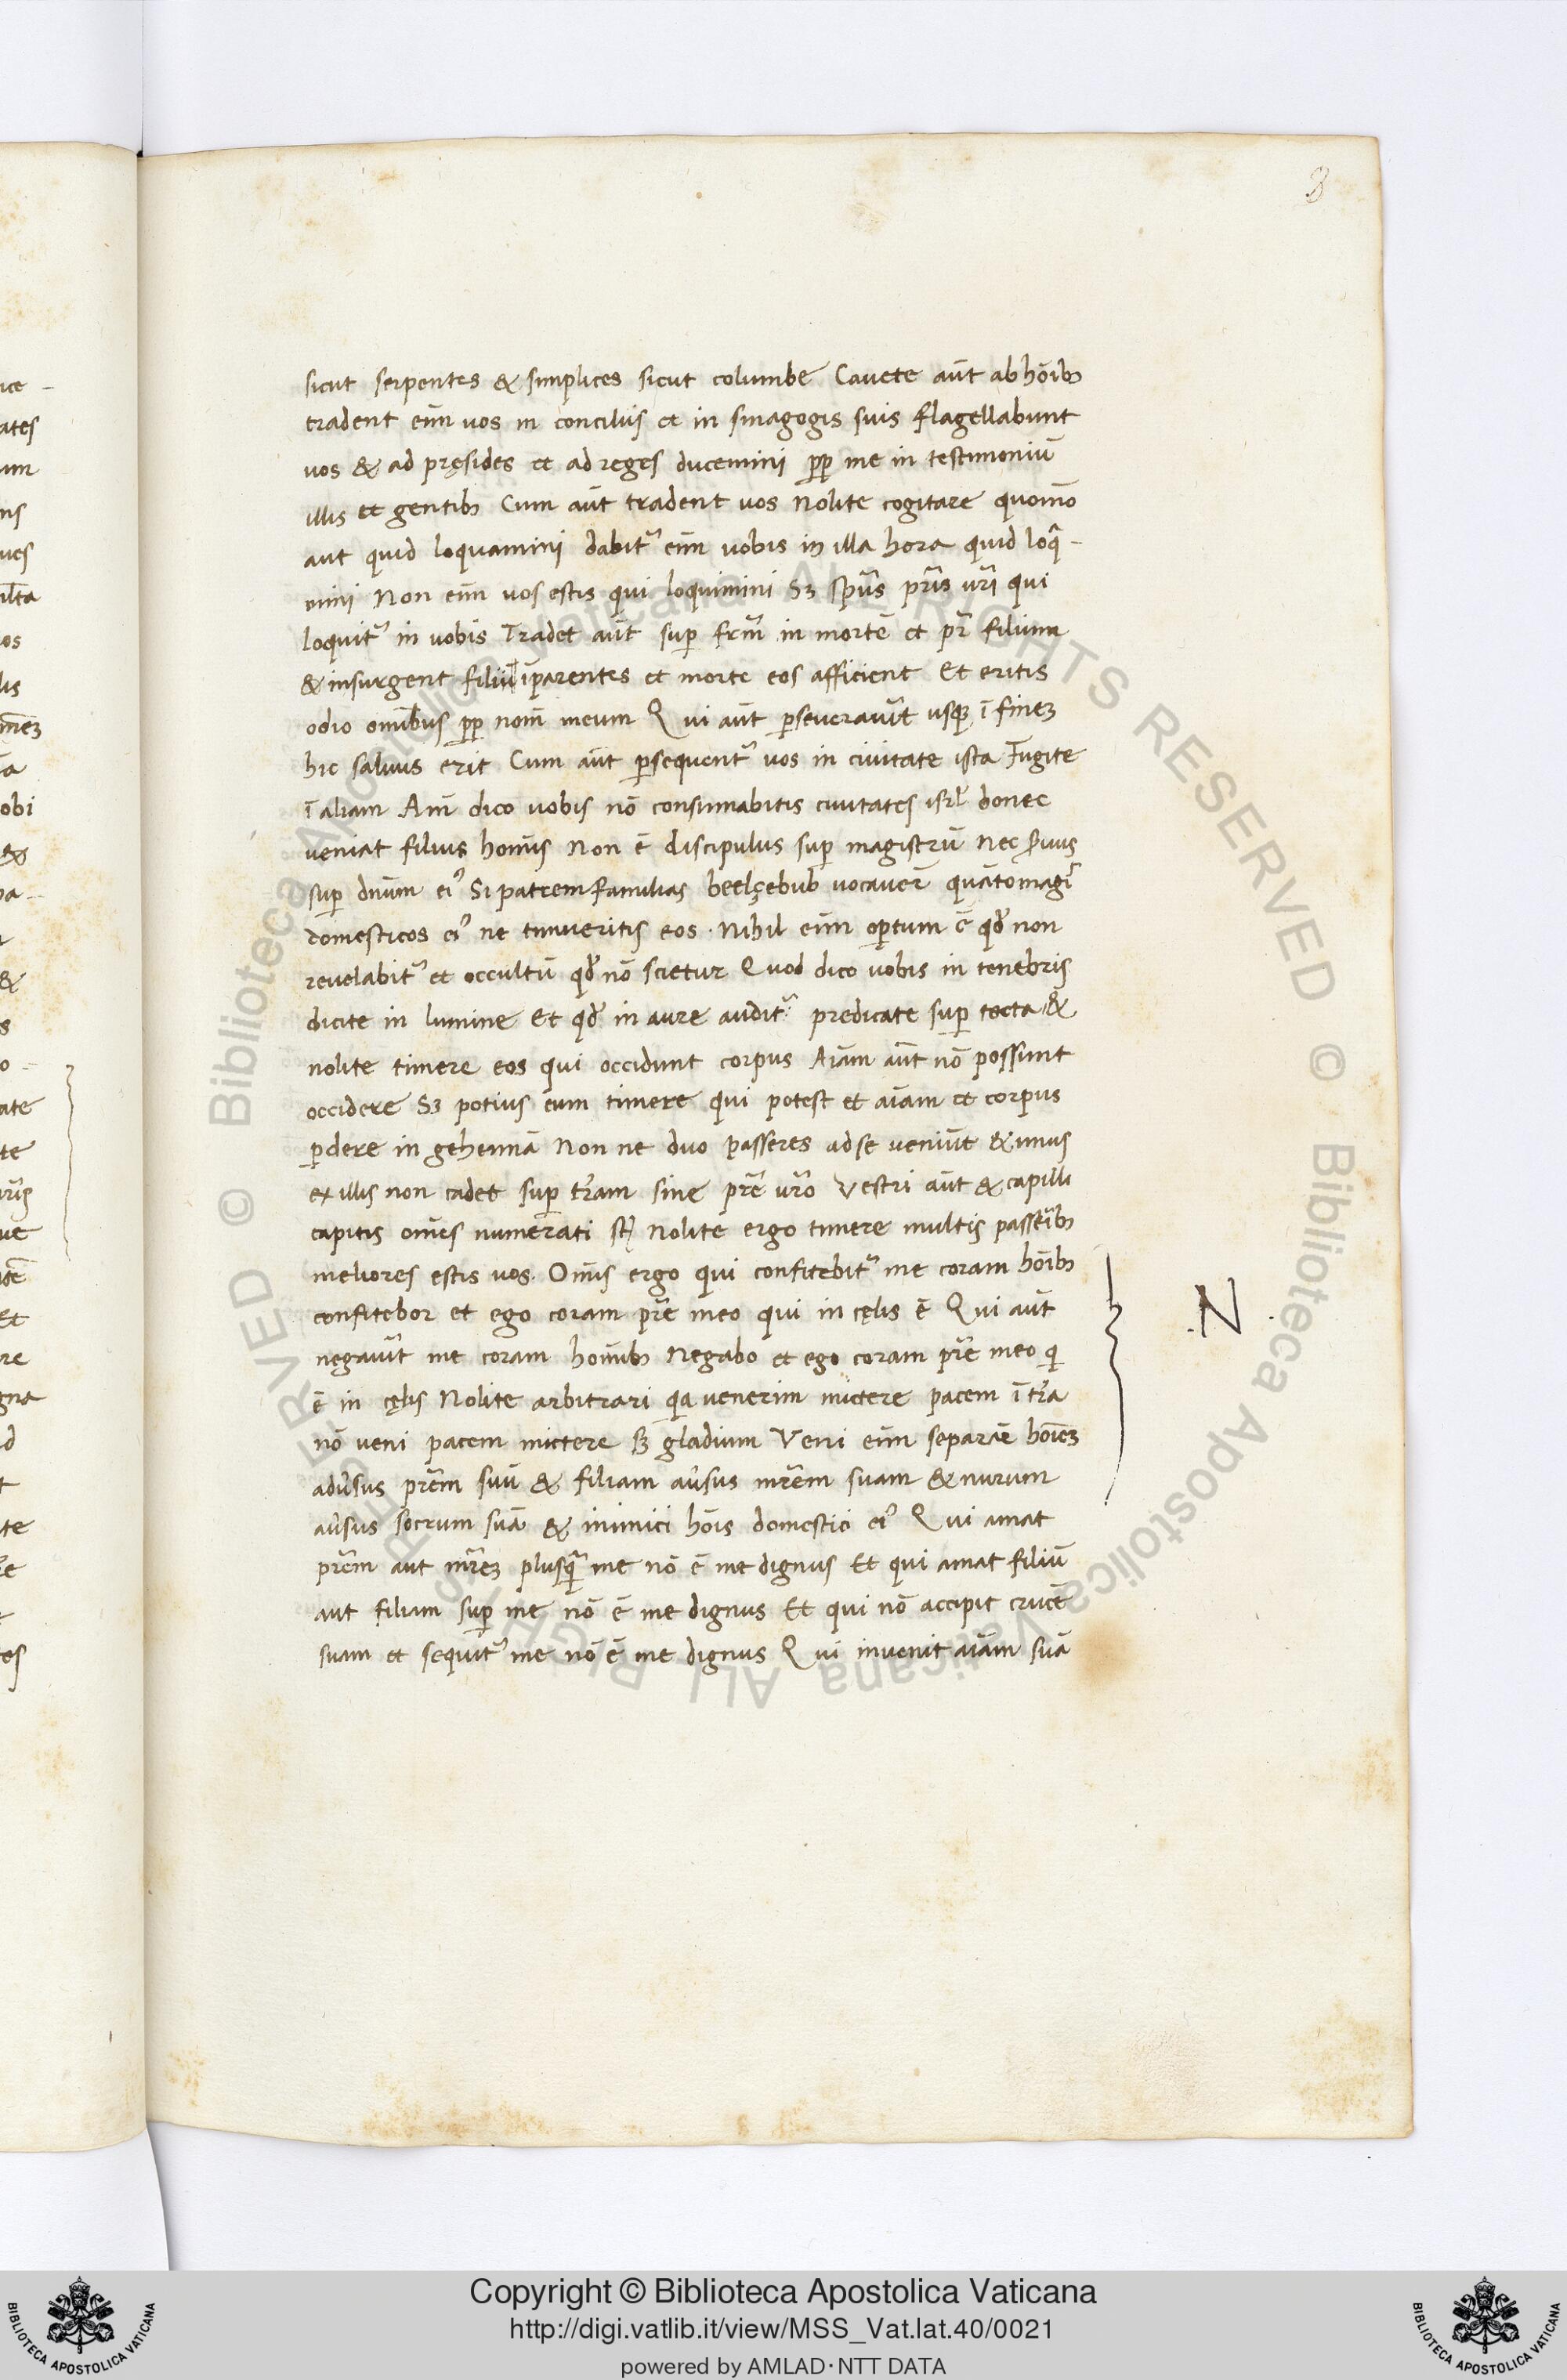 8
sicut serpentes & simplices sicut columbe Cauete aūt ab hōib;
tradent eīm uos in conciliis et in sinagogis suis flagellabunt
uos & ad pręsides et ad reges ducemini ꝓp me in testimoniū
illis et gentib; Cum aūt tradent uos nolite cogitare quomō
aut quid loquamini dabit᷑ eīm uobis in illa hora quid loqͣ-
mini Non eīm uos estis qui loquimini Sꝫ spūs pr̄is ur̄i qui
loquit᷑ in uobis Tradet aūt suꝑ fr̄m in mortē et pr̄ filium
& insurgent filii ī parentes et morte eos afficient Et eritis
odio omībus ꝓp nom̄ meum Qui aūt ꝑseuerauīt usqꝫ ī finēꝫ
hic saluus erit Cum aūt ꝑsequent᷑ uos in ciuitate ista Fugite
ī aliam Am̄ dico uobis nō consumabitis ciuitates isrl̄ donec
ueniat filius homīs Non ē discipulus suꝑ magistrū Nec s̄uus
suꝑ dnūm eiꝰ Si patremfamilias beelçebub uocauer̄ quātomagı̄
domesticos eiꝰ ne timueritis eos . Nihil eīm oꝑtum ē qd̄ non
reuelabit᷑ et occultū qd̄ nō scietur Quod dico uobis in tenebris
dicite in lumine Et qd̄ in aure audit᷑ predicate suꝑ tecta &
nolite timere eos qui occidunt corpus Aīam aūt nō possunt
occidere Sꝫ potius eum timere qui potest et aīam et corpus
ꝑdere in gehennā Non ne duo passeres ad se ueniūt & unus
ex illis non cadet suꝑ tr̄am sine pr̄e ur̄o Vestri aūt & capilli
capitis omēs numerati st̄ Nolite ergo timere multis passīb;
meliores estis uos. Omīs ergo qui confitebit᷑ me coram hōib;
confitebor et ego coram pr̄e meo qui in cęlis ē Qui aūt
negauīt me coram homīb; Negabo et ego coram pr̄e meo qͥ
ē in cęlis Nolite arbitrari qͥa uenerim mictere pacem ī tr̄a
nō ueni pacem mictere sꝫ gladium Veni eīm separāe hōiēꝫ
adūsus pr̄em suū & filiam aūsus mr̄em suam & nurum
aūsus socrum suā & inimici hōis domestici eiꝰ Qui amat
pr̄em aut mr̄eꝫ plusqͣ̄ me nō ē me dignus Et qui amat filiū
aut filiam suꝑ me nō ē me dignus Et qui nō accipit crucē
suam et sequit᷑ me nō ē me dignus Qui inuenit aīam suā
.N.
© Biblioteca Apostolica Vaticana ALL RIGHTS RESERVED © Biblioteca Apostolica Vaticana ALL RIGHTS RESERVED
Copyright © Biblioteca Apostolica Vaticana
http://digi.vatlib.it/view/MSS_Vat.lat.40/0021
powered by AMLAD·NTT DATA
BIBLIOTECA APOSTOLICA VATICANA
BIBLIOTECA APOSTOLICA VATICANA